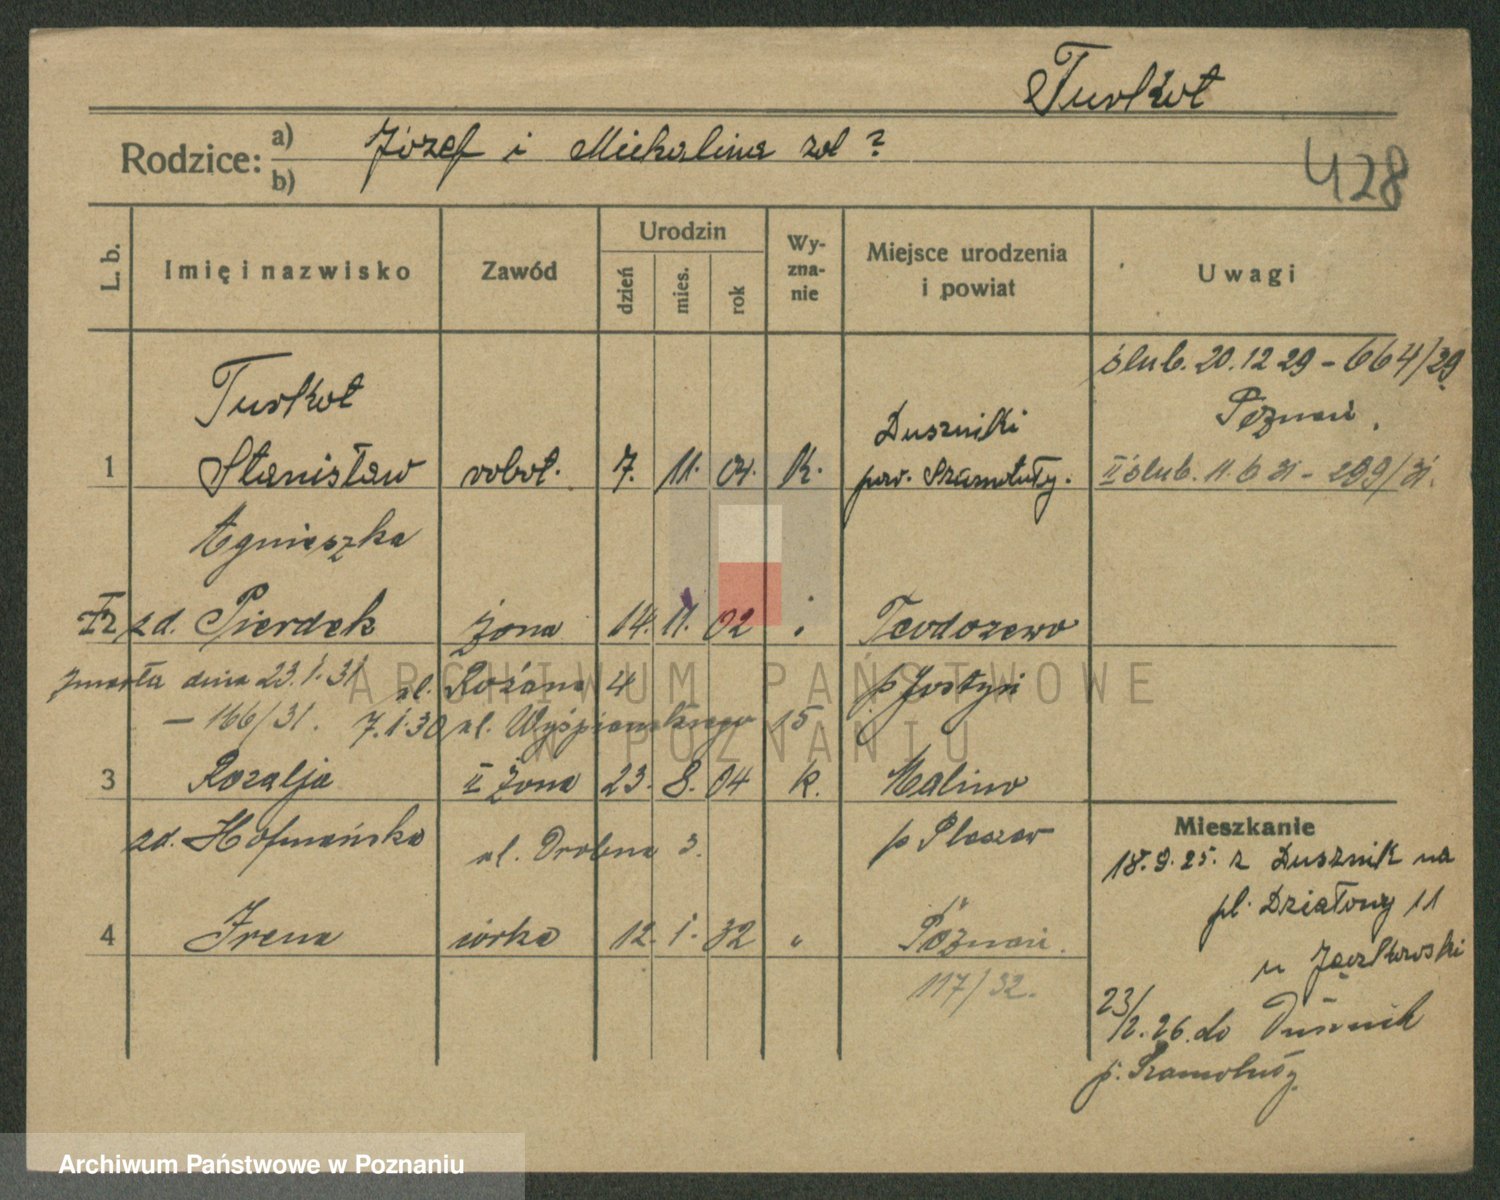 Turkot
Rodzice: a) b) Józef i Michalina zd ?
428
L. b.
Imię i nazwisko
Zawód
Urodzin
dzień
mies.
rok
Wy-
zna-
nie
Miejsce urodzenia
i powiat
Uwagi
ślub. 20.12 29 - 664/29
Poznań.
Turkot
1 Stanisław robot. 7. 11. 04. k.
Duszniki
pow. Szamotuły.
II ślub. 11.6 31 - 299/31.
Agnieszka
I 2 zd. Pierdek żona 14. 11. 02 Teodozewo
zmarła dnia 23.1.31 ul. Różana 4 p Gostyń
- 166/31. 7.1.30 ul. Wyśpiańskiego 15
3 Rozalja II żona 23. 8. 04 k. Malinw
zd. Hofmańska ul. Drobna 3. p Pleszew
4 Irena córka 12. 1. 32 " Poznań.
117/32.
Mieszkanie
18.9.25. z Dusznik na
pl. Działowy 11
u Jączkowski
23/12.26. do Dusznik
p. Szamotuły
ARCHIWUM PAŃSTWOWE
W POZNANIU
Archiwum Państwowe w Poznaniu